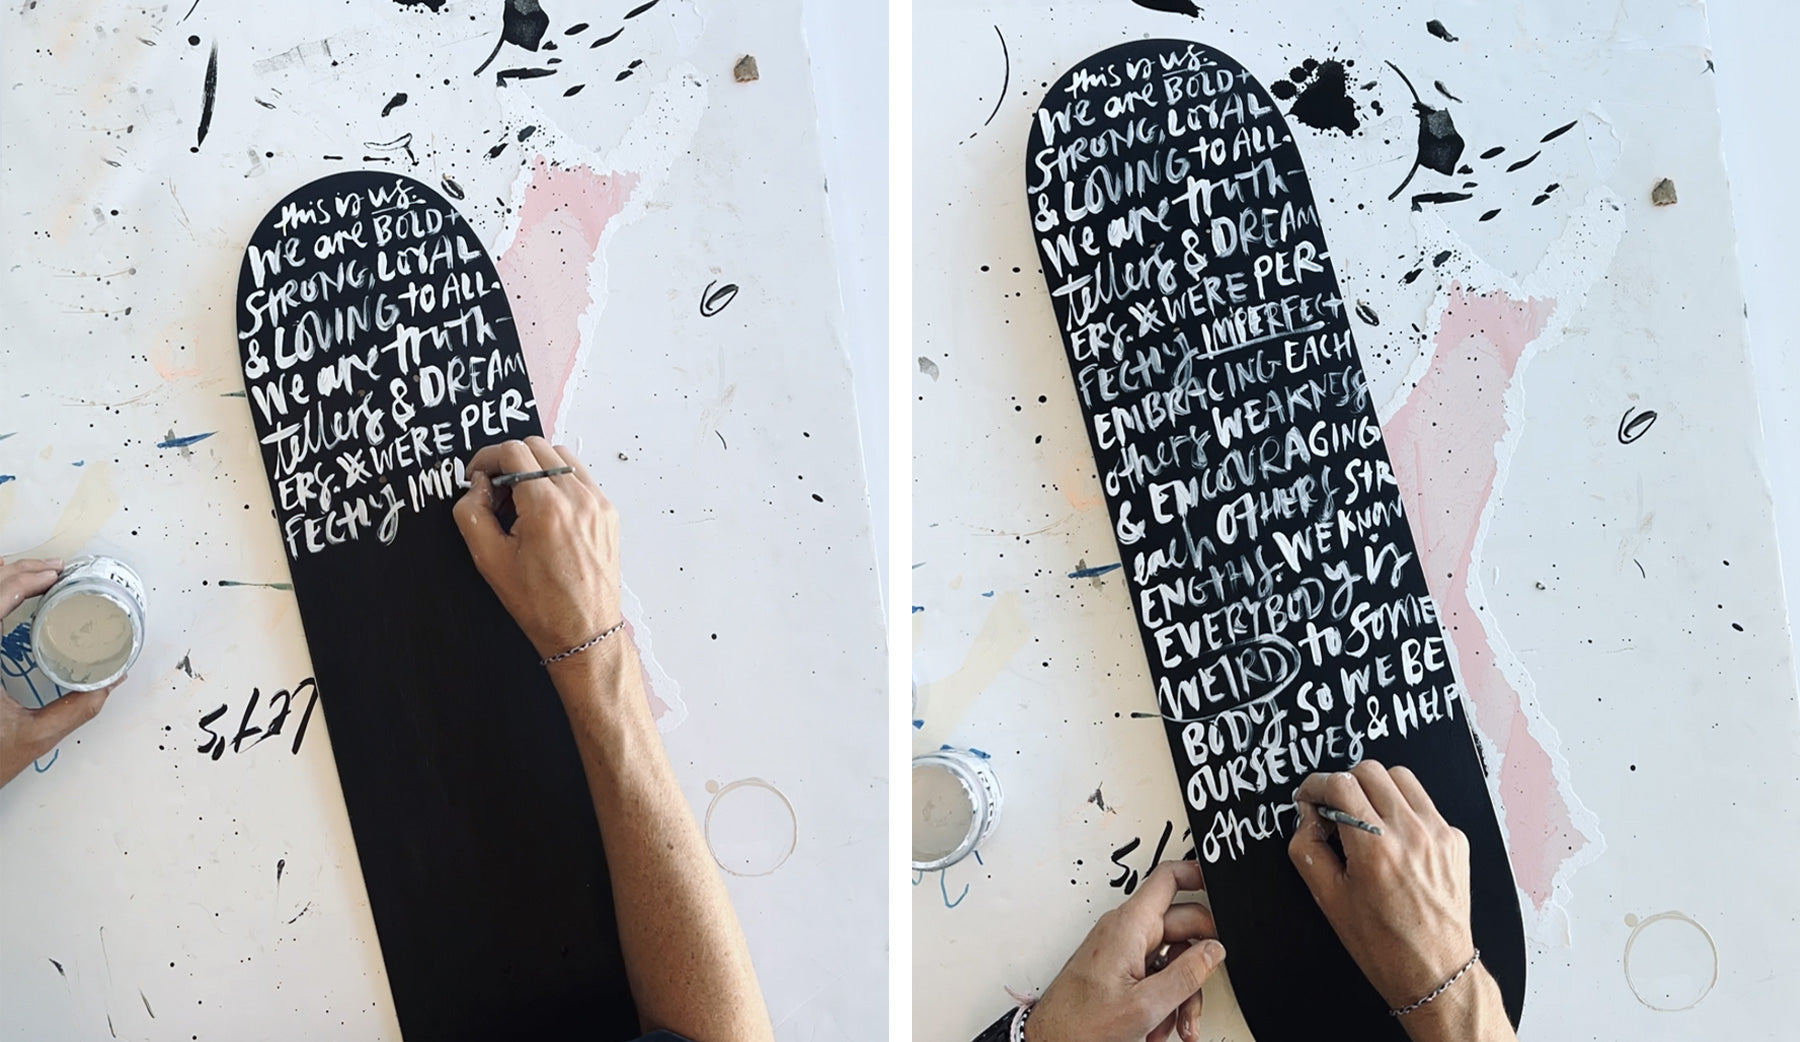 this is us.
We are BOLD +
STRONG, LOYAL
& LOVING TO ALL.
We are truth-
tellers & DREAM
ERS. WERE PER-
FECTLY IMPL
LET'S
this is us.
We are BOLD +
STRONG, LOYAL
& LOVING TO ALL.
We are truth-
tellers & DREAM
ERS. WERE PER-
FECTLY IMPERFECT
EMBRACING EACH
others WEAKNESS
& ENCOURAGING
each OTHERS STR
ENGTHS. WE KNOW
EVERYBODY is
WEIRD to SOME
BODY, SO WE BE
OURSELVES & HELP
other
'S